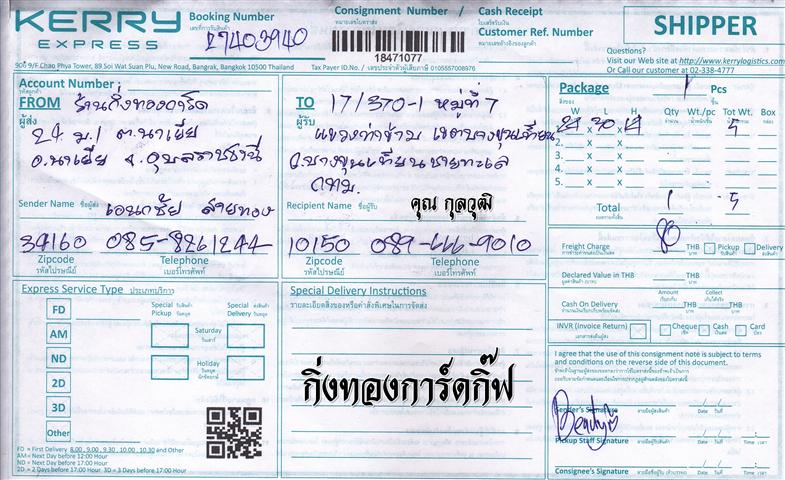 KERRY
EXPRESS
Booking Number
เลขที่การรับสินค้า
27403940
Consignment Number /
หมายเลขใบตราส่ง
Cash Receipt
ใบเสร็จรับเงิน
Customer Ref. Number
หมายเลขอ้างอิงของลูกค้า
18471077
SHIPPER
Questions?
Visit our Web site at http://www.kerrylogistics.com
Or Call our customer at 02-338-4777
906 9/F Chao Phya Tower, 89 Soi Wat Suan Plu, New Road, Bangrak, Bangkok 10500 Thailand
Tax Payer ID.No. / เลขประจำตัวผู้เสียภาษี 0105557008976
Account Number :
รหัสลูกค้า
FROM ร้านกิ่งทองการ์ด
ผู้ส่ง
24 ม.1 ต.นาเยีย
อ.นาเยีย จ.อุบลราชธานี
Sender Name ชื่อผู้ส่ง เอนกชัย สายทอง
34160 085-8261244
Zipcode Telephone
รหัสไปรษณีย์ เบอร์โทรศัพท์
TO 17/370-1 หมู่ที่ 7
ผู้รับ
แขวงท่าข้าม เขตบางขุนเทียน
ถ.บางขุนเทียนชายทะเล
กทม.
Recipient Name ชื่อผู้รับ คุณ กุลวุฒิ
10150 089-666-9010
Zipcode Telephone
รหัสไปรษณีย์ เบอร์โทรศัพท์
Package 1 Pcs
สิ่งของ ชิ้น
W L H Qty Wt./pc Tot Wt. Box
x 30 x 5
2. x x
3. x x
4. x x
5. x x
Total 1 5
Freight Charge 80 THB Pickup Delivery
Declared Value in THB
Amount Collect
Cash On Delivery THB THB
INVR (Invoice Return) Cheque Cash Card
I agree that the use of this consignment note is subject to terms
and conditions on the reverse side of this document.
Sender's Signature ลายมือผู้ส่งสินค้า Date วันที่
Pickup Staff Signature Date วันที่ Time เวลา
Consignee's Signature Date วันที่ Time เวลา
Express Service Type ประเภทบริการ
FD
AM
ND
2D
3D
Other
Special Pickup รับสินค้าวันหยุด
Special Delivery ส่งสินค้าวันหยุด
Saturday
วันเสาร์
Holiday
วันหยุดนักขัตฤกษ์
FD = First Delivery 8.00 , 9.00 , 9.30 , 10.00 , 10.30 and Other
AM = Next Day before 12:00 Hour
ND = Next Day before 17:00 Hour
2D = 2 Days before 17:00 Hour. 3D = 3 Days before 17:00 Hour.
Special Delivery Instructions
รายละเอียดสิ่งของหรือคำสั่งพิเศษในการจัดส่ง
กิ่งทองการ์ดกิ๊ฟ